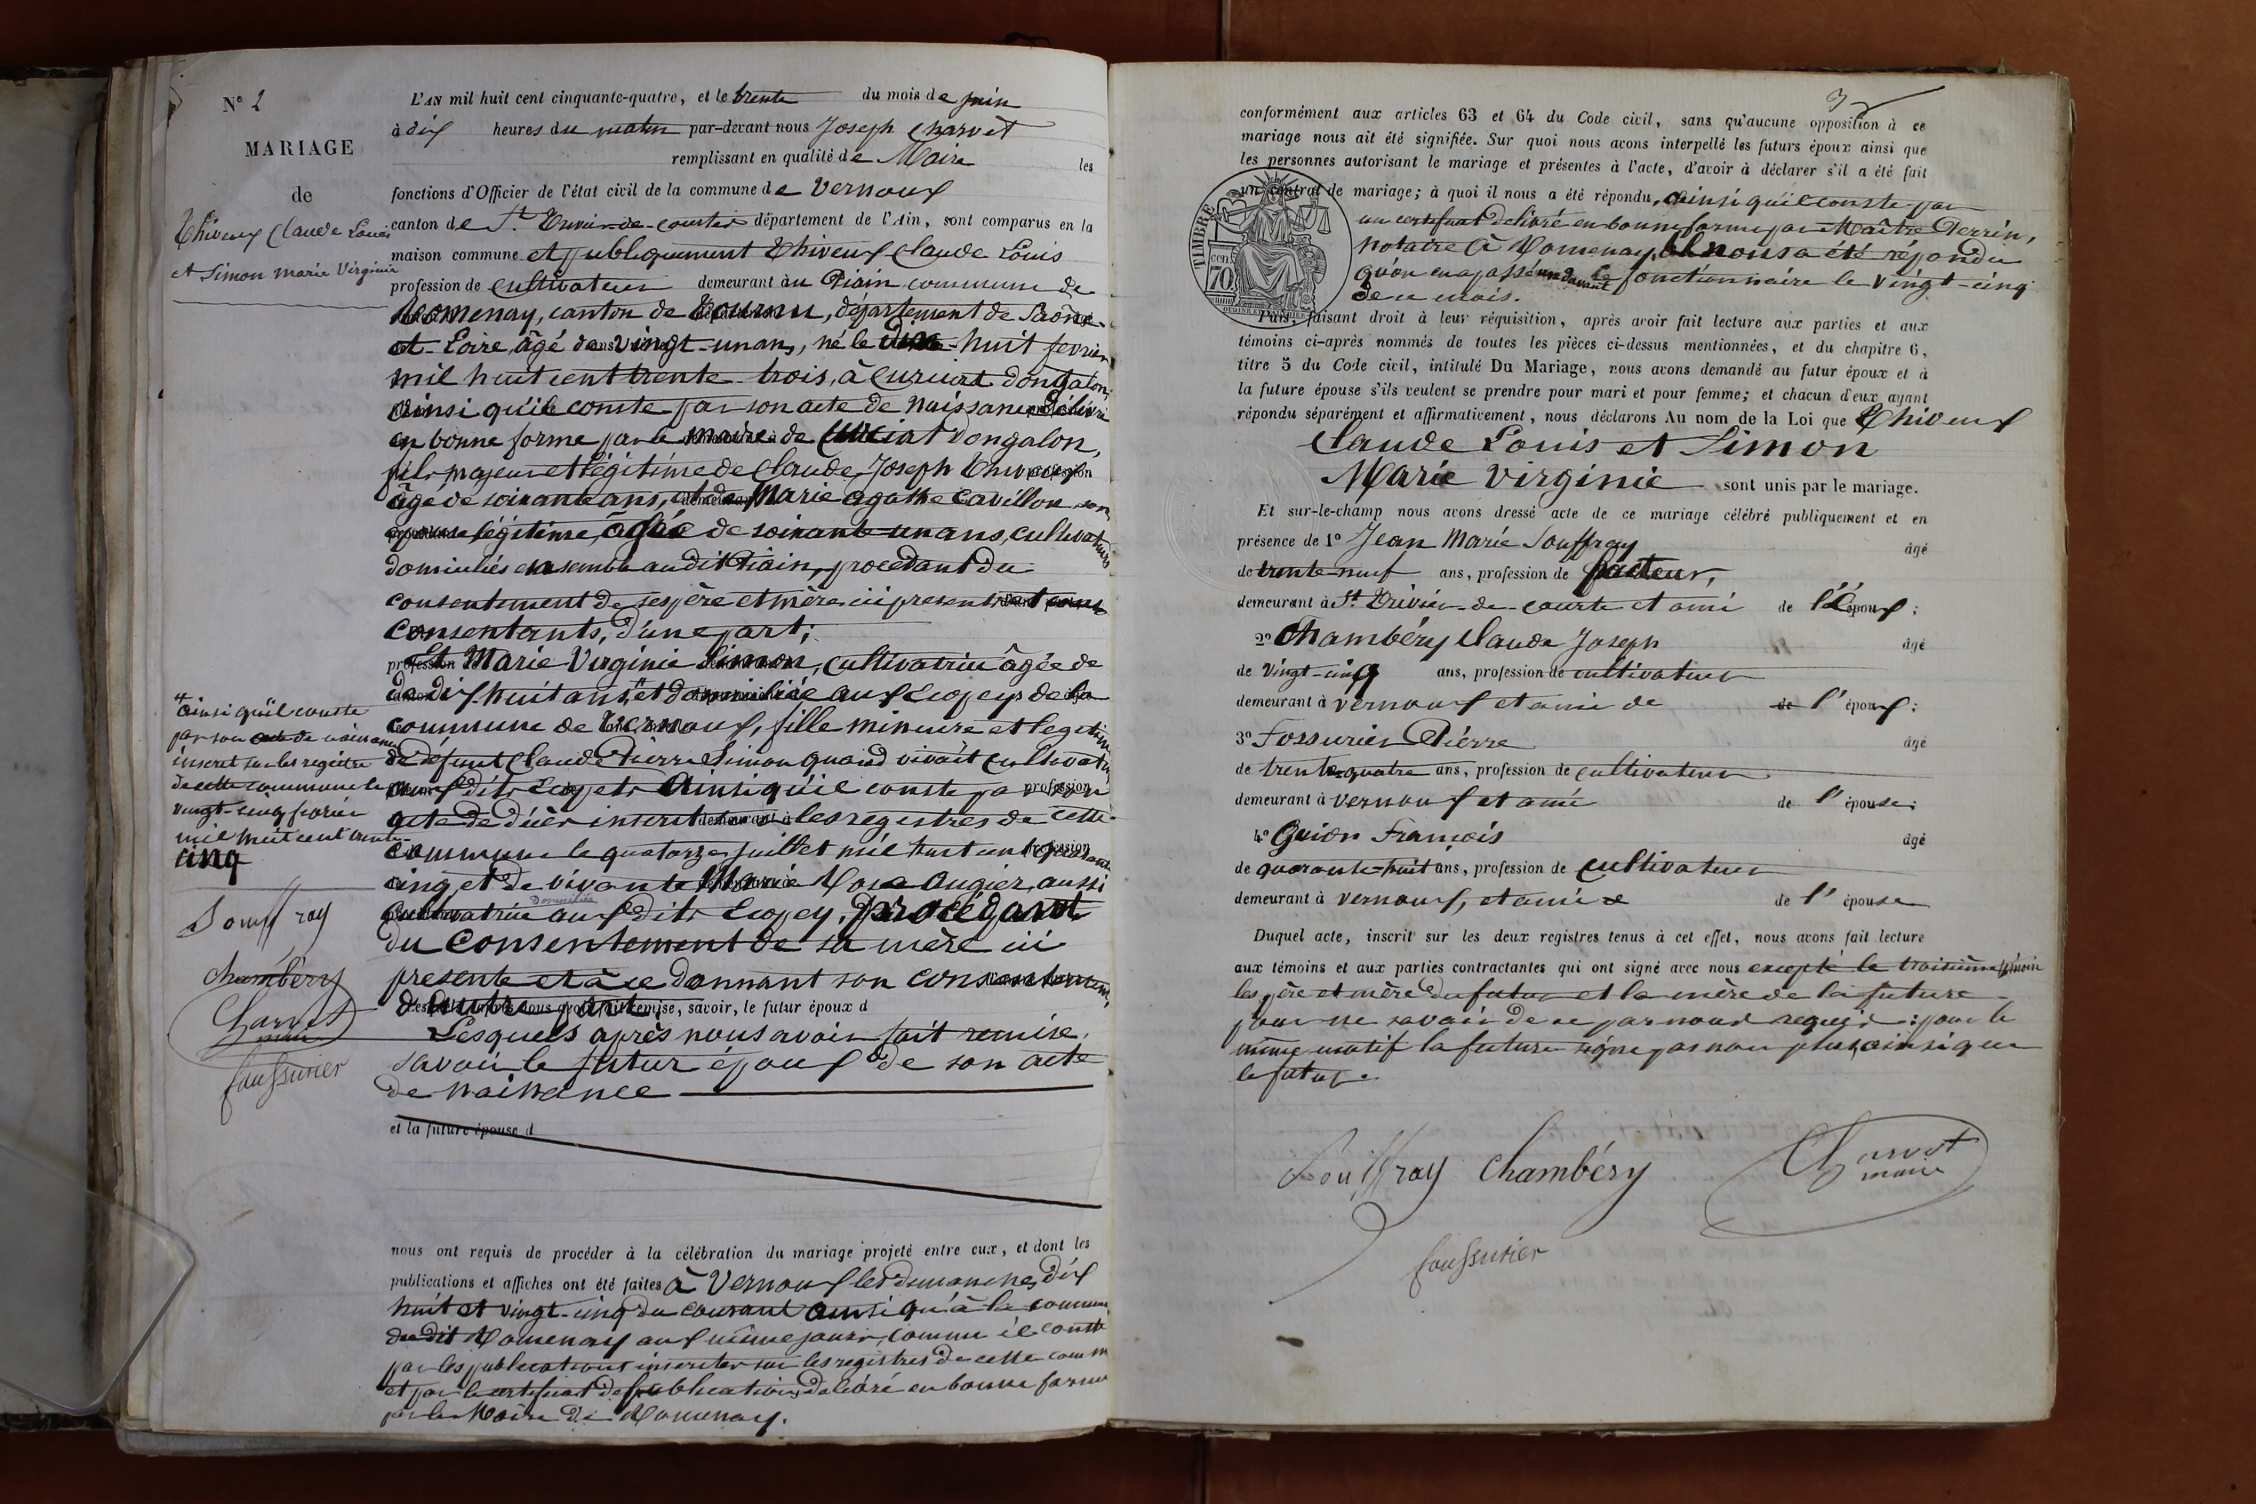 N° 2
MARIAGE
de
Thiveux Claude Louis
et Simon marie Virginie
L'AN mil huit cent cinquante-quatre, et le trente du mois de juin
à dix heures du matin par-devant nous Joseph Charvet
remplissant en qualité de Maire les
fonctions d'Officier de l'état civil de la commune de Vernoux
canton de St. Trivier-de-courtes département de l'Ain, sont comparus en la
maison commune et publiquement Thiveux Claude Louis
profession de cultivateur demeurant à au Piain commune de
Romenay, canton de Tournu, département de Saône-
et-Loire, âgé de vingt-un ans, né le dix-huit fevrier
mil huit cent trente-trois, à Curciat dongalon,
ainsi qu'il conste par son acte de naissance délivré
en bonne forme par le maire de Curciat Dongalon,
fils majeur et légitime de Claude Joseph Thiveux
âgé de soixante ans, et de Marie agathe Cavillon son
épouse légitime, âgée de soixante-un ans, cultivateurs
domiciliés ensemble au dit Piain, procédant du
consentement de ses père et mère ici présents et
consentants, d'une part;
Et Marie Virginie Simon, cultivatrice âgée de
de dix-huit ans, # et domiciliée aux Ecopeys de la
commune de Vernoux, fille mineure et legitime
de défunt Claude Pierre Simon quand vivait cultivateur
aux dits Ecopets ainsi qu'il conste par son
acte de décès inscrit sur les registres de cette
commune le quatorze juillet mil huit cent quarante
cinq, et de vivante Marie Rose Augier, aussi
cultivatrice domiciliée aux dits Ecopey, procédant
du consentement de sa mère ici
présente et à ce donnant son consentement,
d'autre part.
Lesquels après nous avoir fait remise, savoir, le futur époux d
Lesquels après nous avoir fait remise,
savoir le futur époux de son acte
de naissance
et la future épouse d
# ainsi qu'il conste
par son acte de naissance
inscrit sur les registres
de cette commune le
vingt-cinq fevrier
mil huit cent trente
cinq
Souffray
Chambéry
Charvet
maire
faussurier
nous ont requis de procéder à la célébration du mariage projeté entre eux, et dont les
publications et affiches ont été faites à Vernoux les dimanches dix
huit et vingt-cinq du courant ainsi qu'à la commune
du dit Romenay aux mêmes jours, comme il conste
par les publications inscrites sur les registres de cette comm
et par le certificat de publication délivré en bonne forme
par le Maire de Romenay.
3
conformément aux articles 63 et 64 du Code civil, sans qu'aucune opposition à ce
mariage nous ait été signifiée. Sur quoi nous avons interpellé les futurs époux ainsi que
les personnes autorisant le mariage et présentes à l'acte, d'avoir à déclarer s'il a été fait
un contrat de mariage; à quoi il nous a été répondu, ainsi qu'il conste par
un certificat délivré en bonne forme par Maître Perrin,
notaire à Romenay, il nous a été répondu
qu'on en a passé un devant le fonctionnaire le vingt-cinq
de ce mois.
TIMBRE
70
Puis, faisant droit à leur réquisition, après avoir fait lecture aux parties et aux
témoins ci-après nommés de toutes les pièces ci-dessus mentionnées, et du chapitre 6,
titre 5 du Code civil, intitulé Du Mariage, nous avons demandé au futur époux et à
la future épouse s'ils veulent se prendre pour mari et pour femme; et chacun d'eux ayant
répondu séparément et affirmativement, nous déclarons Au nom de la Loi que Thiveux
Claude Louis et Simon
Marie Virginie sont unis par le mariage.
Et sur-le-champ nous avons dressé acte de ce mariage célébré publiquement et en
présence de 1° Jean Marie Souffray âgé
de trente-neuf ans, profession de facteur,
demeurant à St. Trivier-de-courte et ami de l'époux;
2° Chambéry Claude Joseph âgé
de vingt-cinq ans, profession de cultivateur
demeurant à vernoux et ami de de l'époux;
3° Fossurier Pierre âgé
de trente-quatre ans, profession de cultivateur
demeurant à vernoux et ami de l'épouse;
4° Guion François âgé
de quarante-huit ans, profession de cultivateur
demeurant à vernoux, et ami de l'épouse
Duquel acte, inscrit sur les deux registres tenus à cet effet, nous avons fait lecture
aux témoins et aux parties contractantes qui ont signé avec nous excepté le troisième témoin
les père et mère du futur et la mère de la future
pour ne savoir de ce par nous requis; pour le
même motif la future signe pas non plus, ainsi que
le futur.
Souffray Chambéry Charvet
maire
faussurier